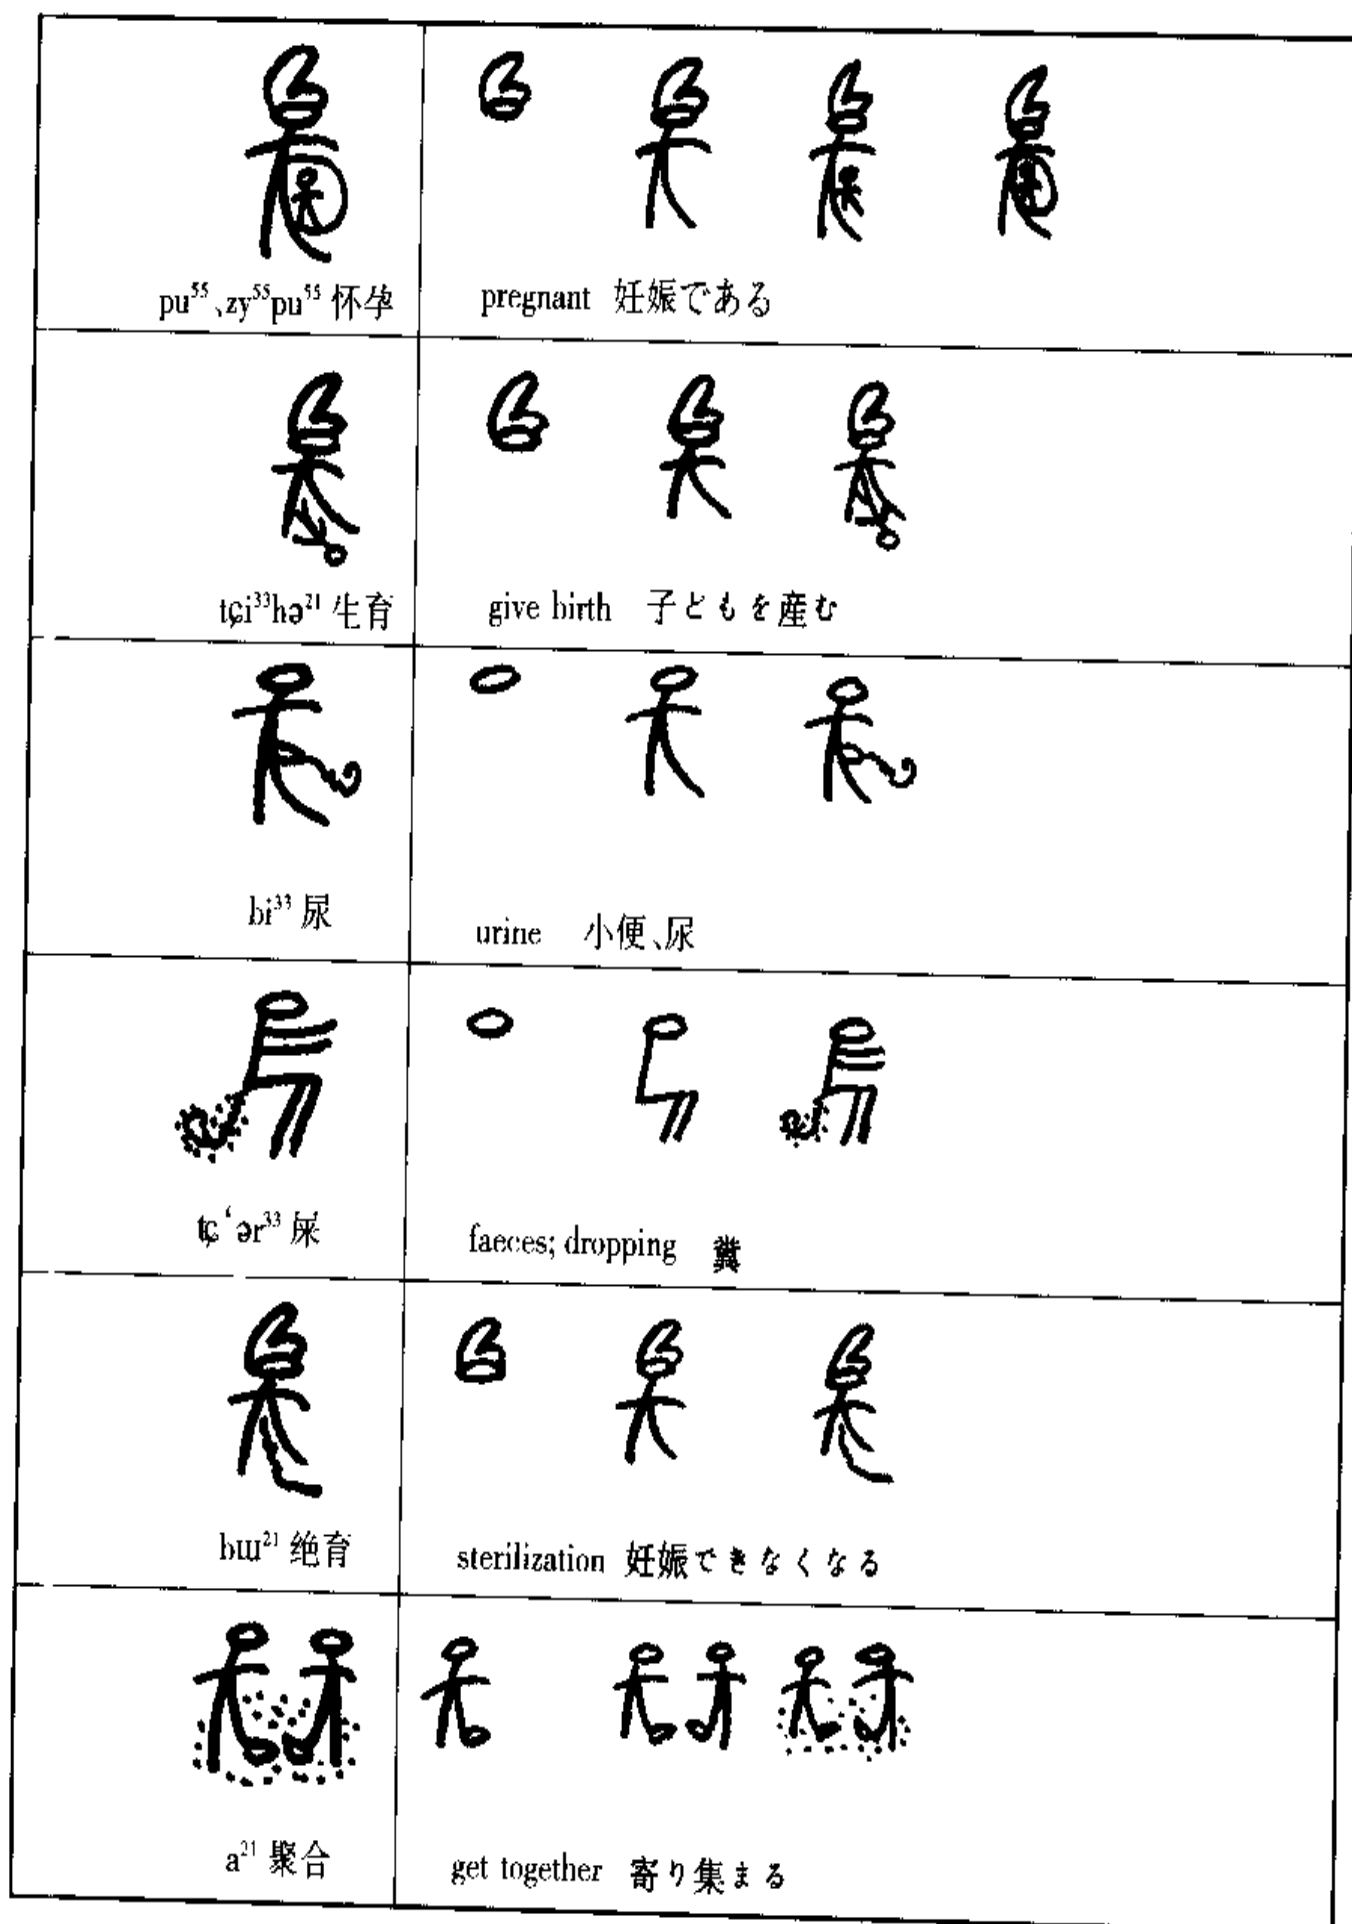 pu⁵⁵、zy⁵⁵pu⁵⁵ 怀孕
pregnant 妊娠である
tɕi³³hə²¹ 生育
give birth 子どもを産む
bi³³ 尿
urine 小便、尿
tɕ‘ər³³ 屎
faeces; dropping 糞
bɯ²¹ 绝育
sterilization 妊娠できなくなる
a²¹ 聚合
get together 寄り集まる